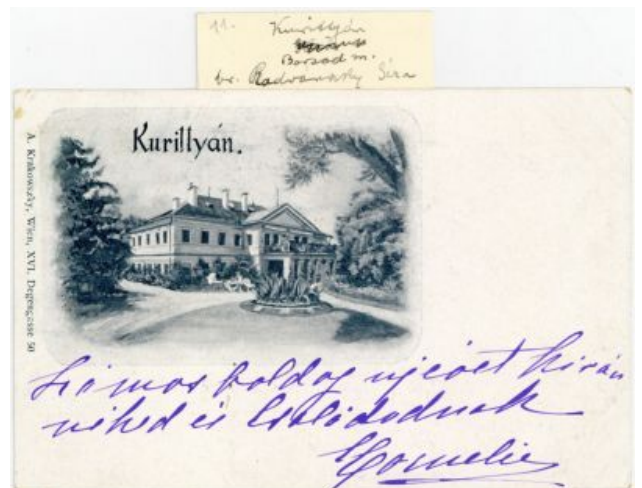 11. Kurittyán
Borsod m.
br. Radvánszky Géza
Kurittyán.
A. Krakowszky, Wien, XVI. Degengasse 50
Számos boldog ujévet kíván
néked és Családodnak
Kornelie